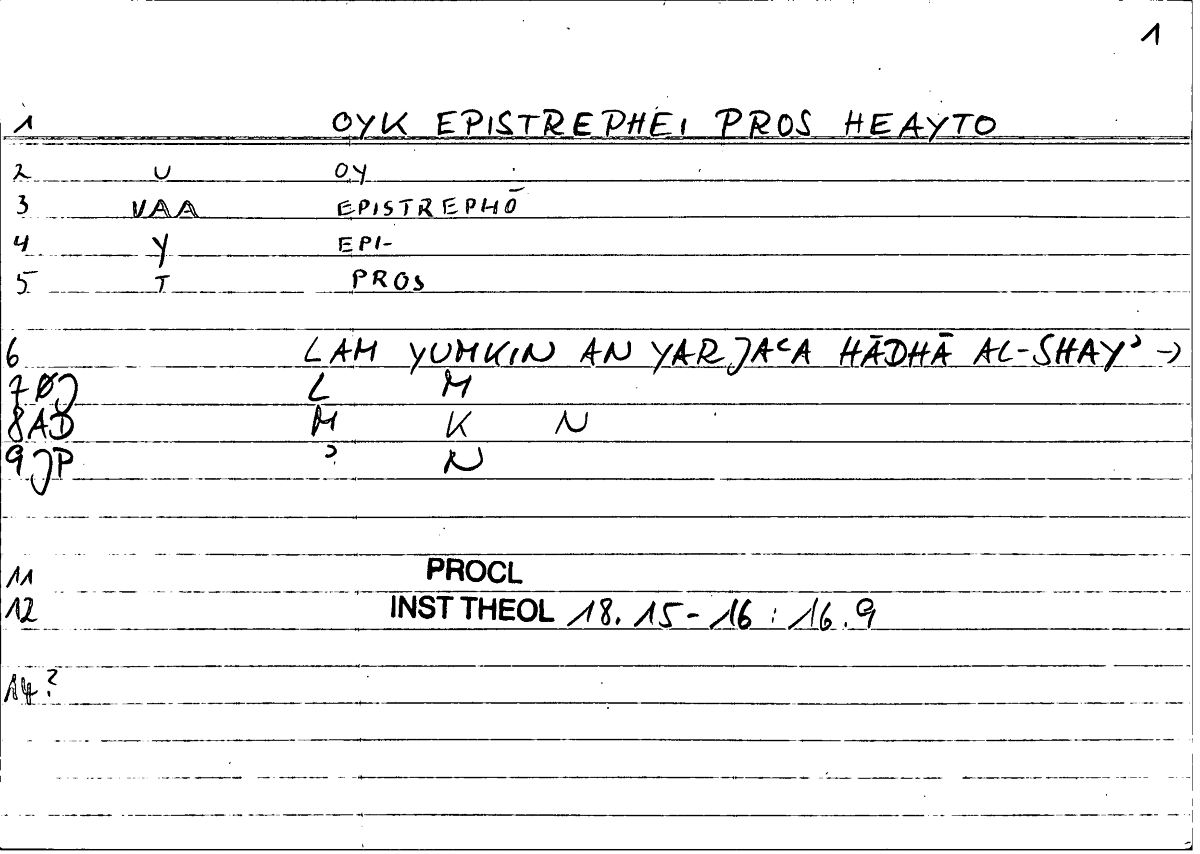 1
1 OYK EPISTREPHEI PROS HEAYTO
2 U OY
3 VAA EPISTREPHŌ
4 Y EPI-
5 T PROS
6 LAM YUMKIN AN YARJAᶜA HĀDHĀ AL-SHAYʾ →
7ØJ L M
8AD M K N
9JP ʾ N
11 PROCL
12 INST THEOL 18.15-16 : 16.9
14?